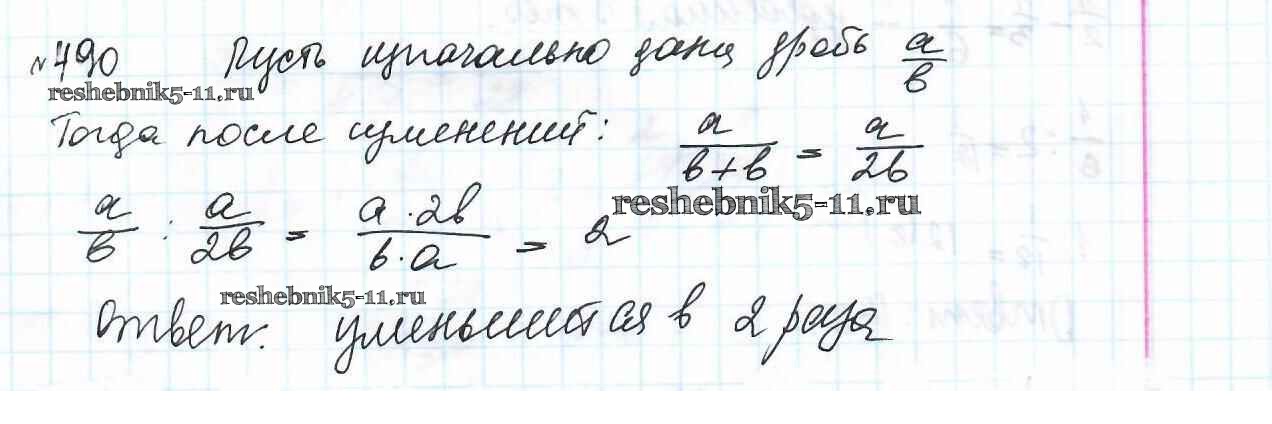 №490 Пусть изначально дана дробь a/b
reshebnik5-11.ru
Тогда после изменений: a/(b+b) = a/2b
reshebnik5-11.ru
a/b : a/2b = (a·2b)/(b·a) = 2
reshebnik5-11.ru
Ответ: уменьшится в 2 раза